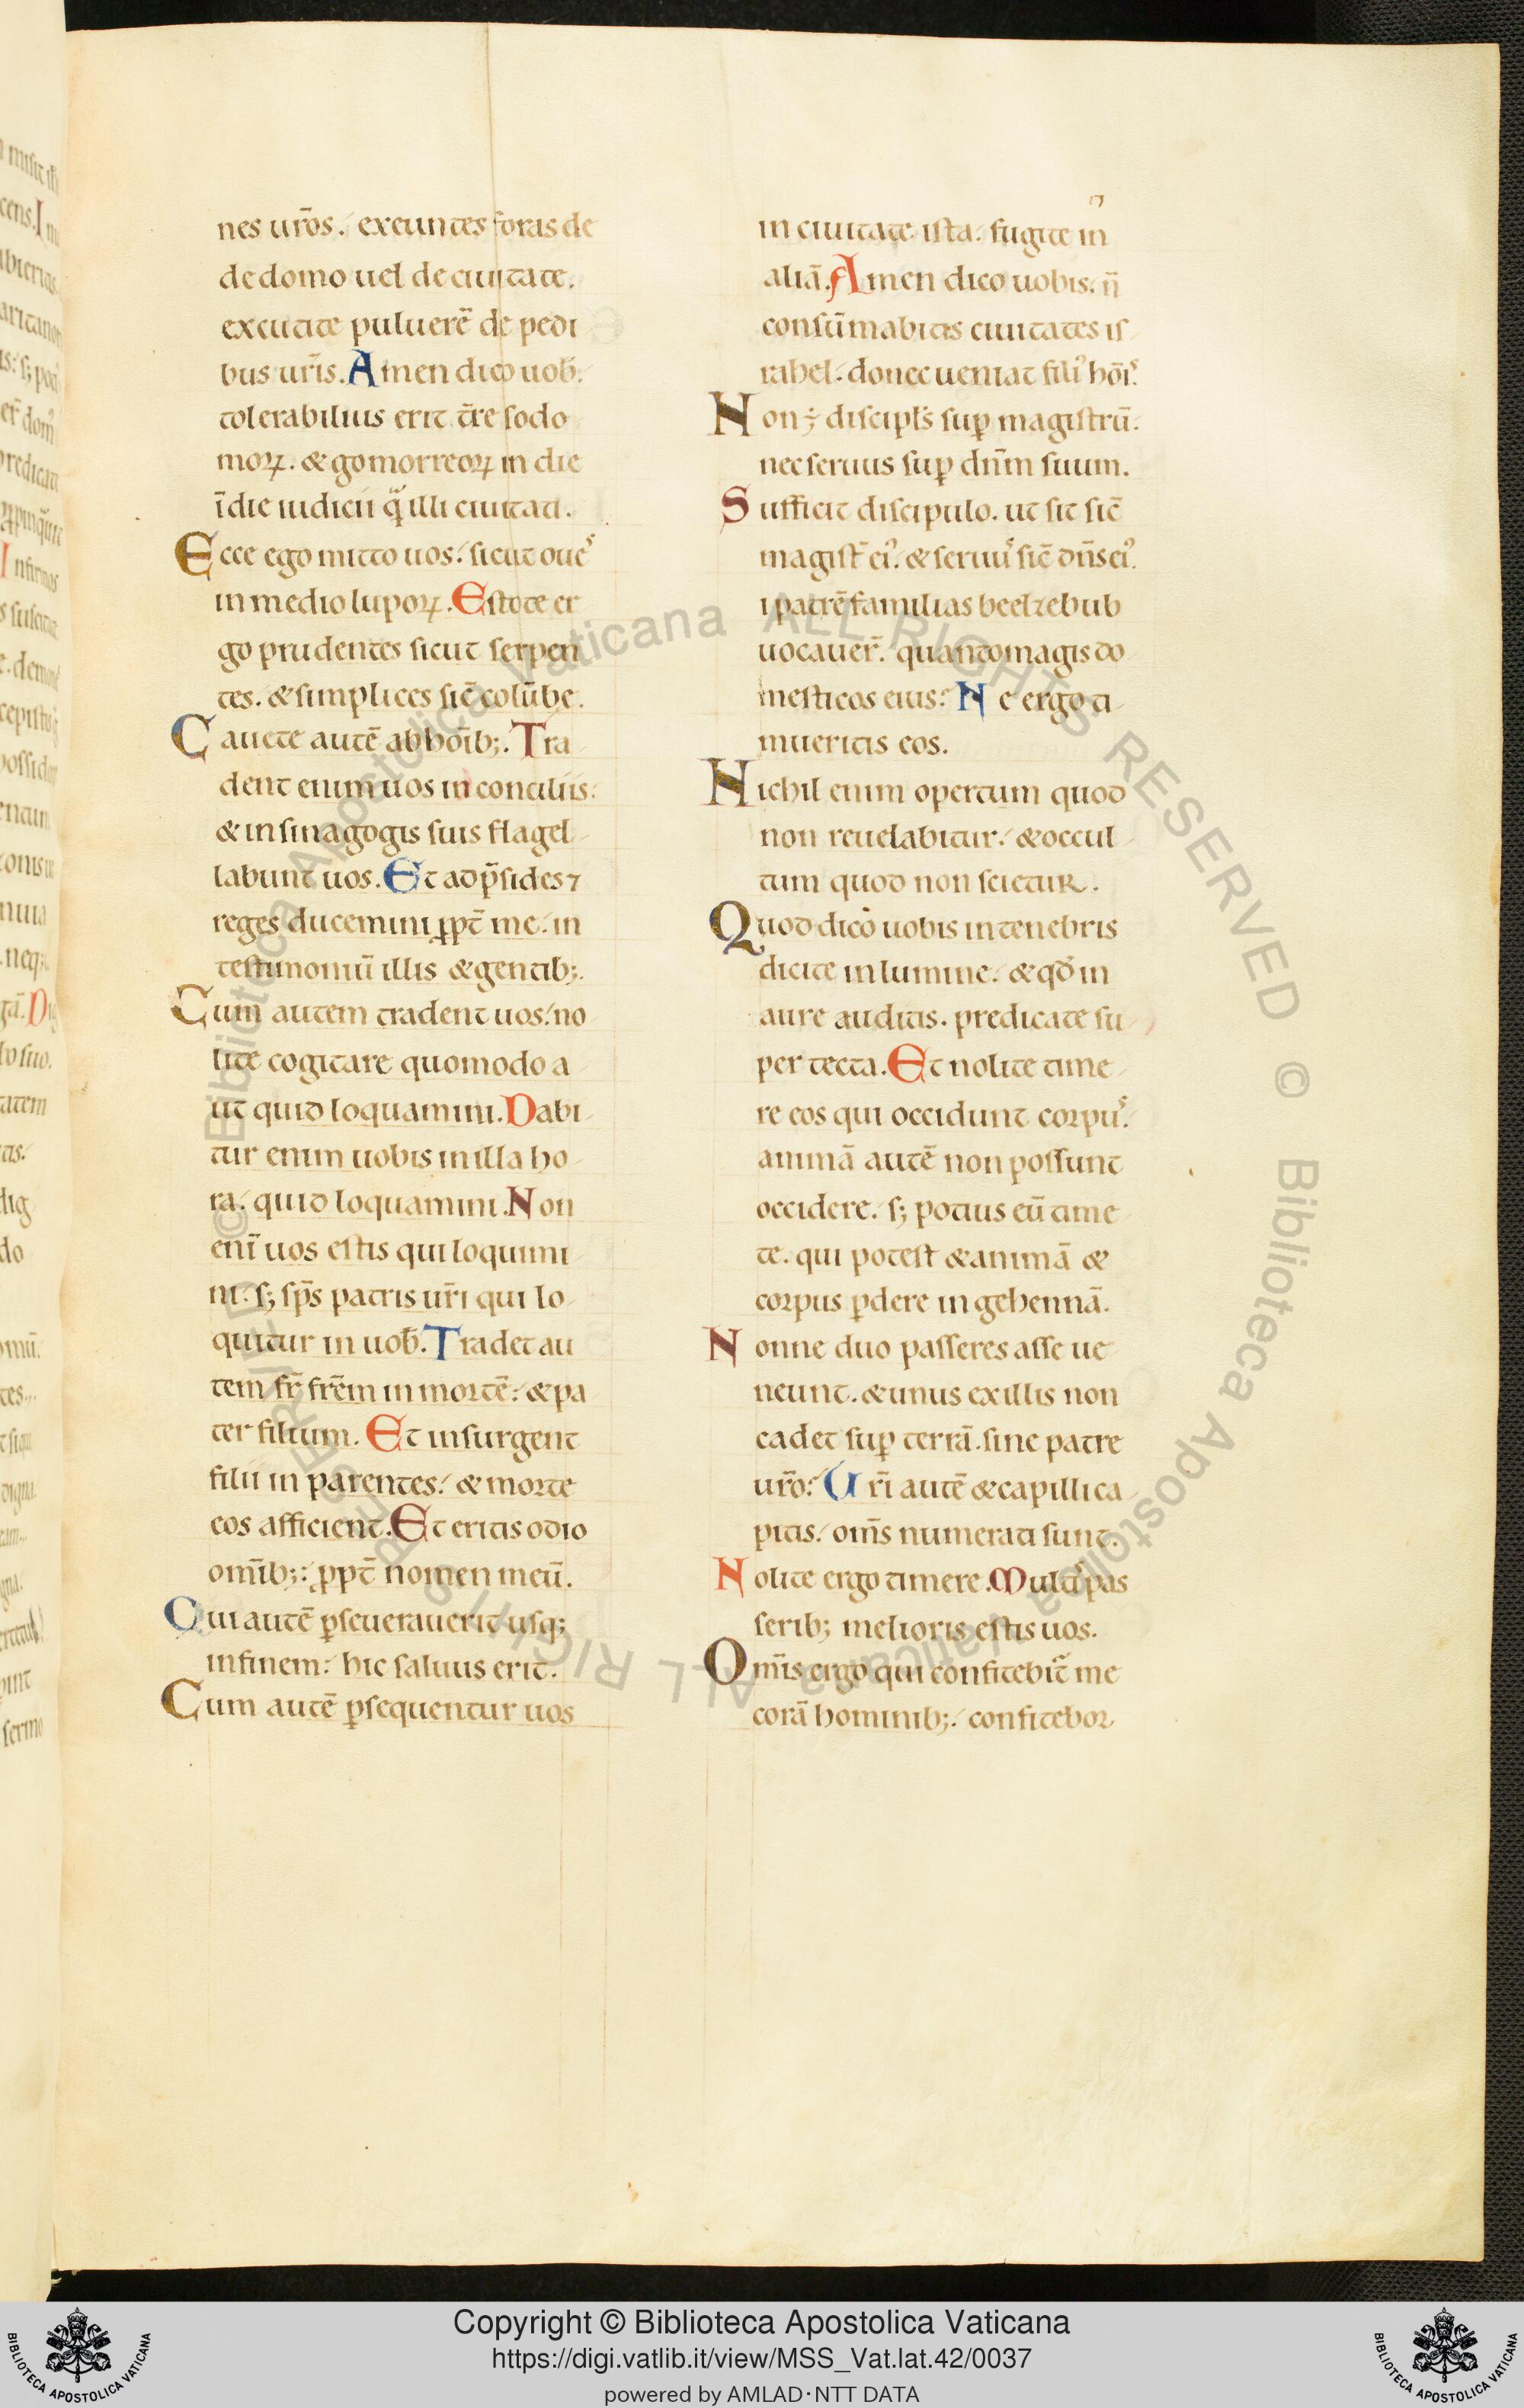 nes ur̄os. exeuntes foras de
de domo uel de ciuitate.
excutite puluerē de pedi
bus ur̄is. Amen dico uob̄.
tolerabilius erit t̄re sodo
moꝝ. & gomorreoꝝ in die
ī die iudicii q̄ illi ciuitati.
Ecce ego mitto uos. sicut oues
in medio lupoꝝ. Estote er
go prudentes sicut serpen
tes. & simplices sic̄ colūbe.
Cauete autē ab hoīb;. Tra
dent enim uos in conciliis.
& in sinagogis suis flagel
labunt uos. Et ad p̄sides ⁊
reges ducemini ꝓpt̄ me. in
testimoniū illis & gentib;.
Cum autem tradent uos. no
lite cogitare quomodo a
ut quid loquamini. Dabi
tur enim uobis in illa ho
ra. quid loquamini. Non
eni̅ uos estis qui loquimi
ni. s; sp̄s patris ur̄i qui lo
quitur in uob̄. Tradet au
tem fr̄ fr̄em in mortē. & pa
ter filium. Et insurgent
filii in parentes. & morte
eos afficient. Et eritis odio
omīb;. ꝓpt̄ nomen meū.
Qui autē ꝑseuerauerit usq;
in finem. hic saluus erit.
Cum autē ꝑsequentur uos
in ciuitate ista. fugite in
aliā. Amen dico uobis. n̄
consūmabitis ciuitates is
rahel. donec ueniat filiꝰ hōīs.
Non ÷ discipl̄s suꝑ magistrū.
nec seruus suꝑ dn̄m suum.
Sufficit discipulo. ut sit sic̄
magist̄ eiꝰ. & seruus sic̄ dn̄s eiꝰ.
i patrē familias beelzebub
uocauer̄. quanto magis do
mesticos eius. Ne ergo ti
mueritis eos.
Nichil enim opertum quod
non reuelabitur. & occul
tum quod non scietur.
Quod dico uobis in tenebris
dicite in lumine. & qd̄ in
aure auditis. predicate su
per tecta. Et nolite time
re eos qui occidunt corpus.
animā autē non possunt
occidere. s; potius eū time
te. qui potest & animā &
corpus ꝑdere in gehennā.
Nonne duo passeres asse ue
neunt. & unus ex illis non
cadet suꝑ terrā. sine patre
ur̄o. Ur̄i autē & capilli ca
pitis. om̄s numerati sunt.
Nolite ergo timere. Multis pas
serib; melioris estis uos.
Om̄is ergo qui confitebit̄ me
corā hominib;. confitebor
Copyright © Biblioteca Apostolica Vaticana
https://digi.vatlib.it/view/MSS_Vat.lat.42/0037
powered by AMLAD·NTT DATA